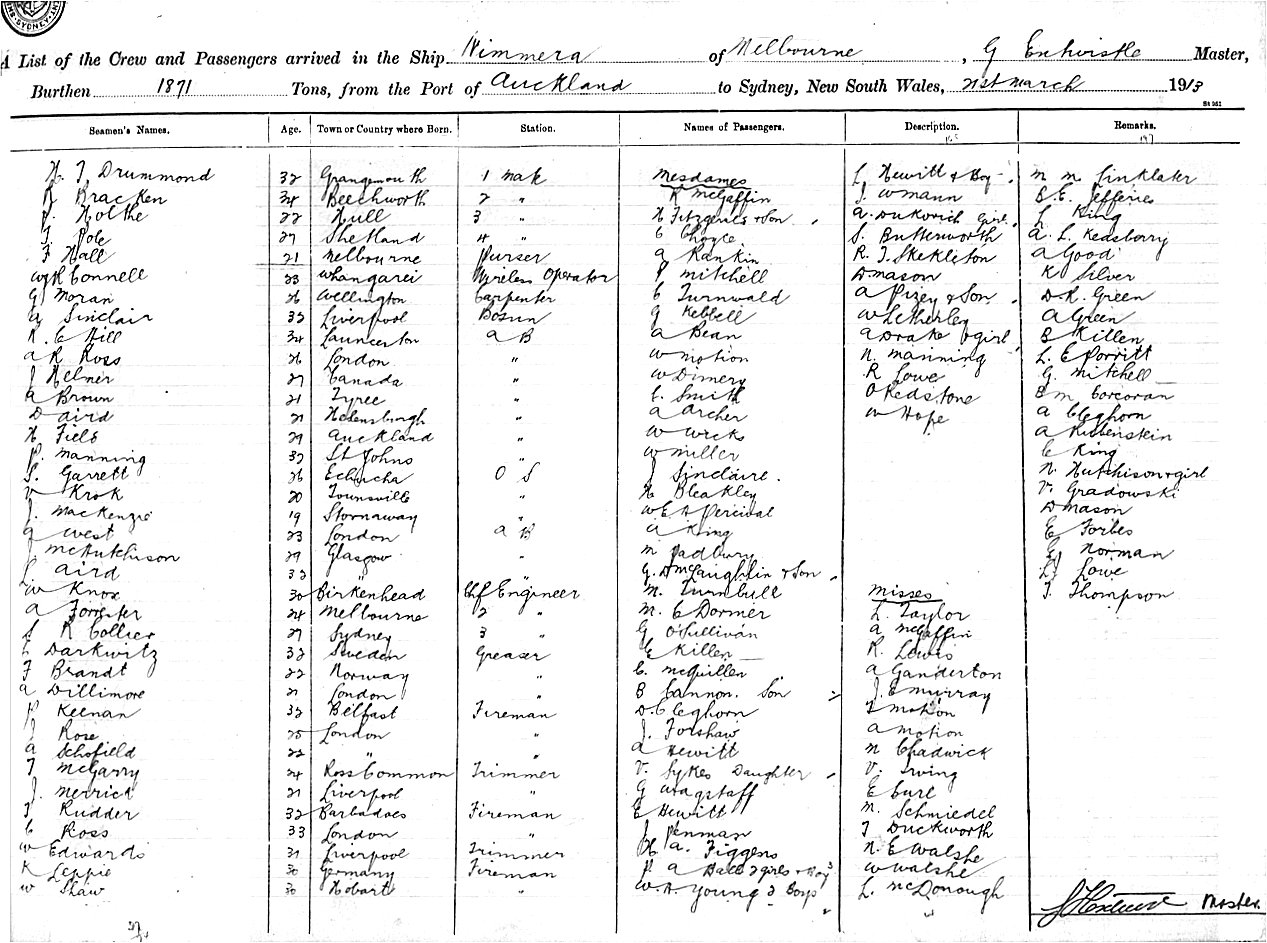 SYDNEY
A List of the Crew and Passengers arrived in the Ship Wimmera of Melbourne, G Entwistle Master,
Burthen 1871 Tons, from the Port of Auckland to Sydney, New South Wales, 21st March 1913
St 251
Seamen's Names. Age. Town or Country where Born. Station. Names of Passengers. Description. Remarks.
165 197
H. J. Drummond 32 Grangemouth 1 Mate Mesdames L Hewitt & Boy M M Linklater
R Bracken 34 Beechworth 2 " R McGaffin J. W Mann B. E. Jefferies
J. Holthe 22 Hull 3 " H Fitzgerald & Son A. Dukovich Girl L King
J Pole 27 Shetland 4 " C Choyce S. Butterworth A. L. Kedsberry
F Hall 21 Melbourne Purser A Rankin R. J. Skekleton A Good
W R Connell 23 Whangarei Wireless Operator P Mitchell D Mason K Silver
G Moran 26 Wellington Carpenter C Turnwald A Pizey & Son D. R. Green
A Sinclair 33 Liverpool Bosun G Kebbell W Letherley A Green
R. C Hill 34 Launceston A B A Bean A Drake & girl B Killen
A R Ross 26 London " W Motion N. Manning L. E Porritt
J Helner 27 Canada " W Dimery R Lowe G. Mitchell
A Brown 21 Tyree " C. Smith O Redstone B M Corcoran
D Aird 21 Helensburgh " A Archer W Hope A Cleghorn
H Field 29 Auckland " W Wicks A Rubenstein
P. Manning 32 St Johns " W Miller C King
S. Garrett 26 Echucha O S J Sinclaire. N. Hutchison & girl
V Krok 20 Townsville " H Bleakley V. Gradowski
J. MacKenzie 19 Stornaway " W E A Percival D Mason
G West 23 London A B A King E Forbes
J. McHutchison 29 Glasgow " M Padbury E Norman
L Aird 32 " " G. D McLaughlin & Son L. Lowe
W Knox 30 Birkenhead Chf Engineer M. Turnbull Misses J. Thompson
A Forrester 24 Melbourne 2 " M. C Dormer L. Taylor
S R Collier 27 Sydney 3 " G O'Sullivan A McGaffin
L Darkwitz 32 Sweden Greaser E Killen R. Lewis
F Brandt 22 Norway " C. McQuillen A Ganderton
A Dillimore 21 London " B Cannon. Son J. E Murray
P Keenan 32 Belfast Fireman D. Cleghorn I Motion
J Rose 25 London " J. Forshaw A Motion
A Schofield 22 " " A Hewitt N Chadwick
T McGarry 24 Ross Common Trimmer V. Sykes Daughter V. Irving
J. Merrick 21 Liverpool " G Wagstaff E Curl
T Rudder 32 Barbadoes Fireman E Hewitt M. Schmiedel
C Ross 33 London " J Penman T Duckworth
W Edwards 31 Liverpool Trimmer H A. Figgens N. E Walshe
K Leppie 30 Germany Fireman P A Ball 2 girls & Boy W Walshe
W Shaw 30 Hobart " W. A Young 2 Boys L. McDonough
Master.